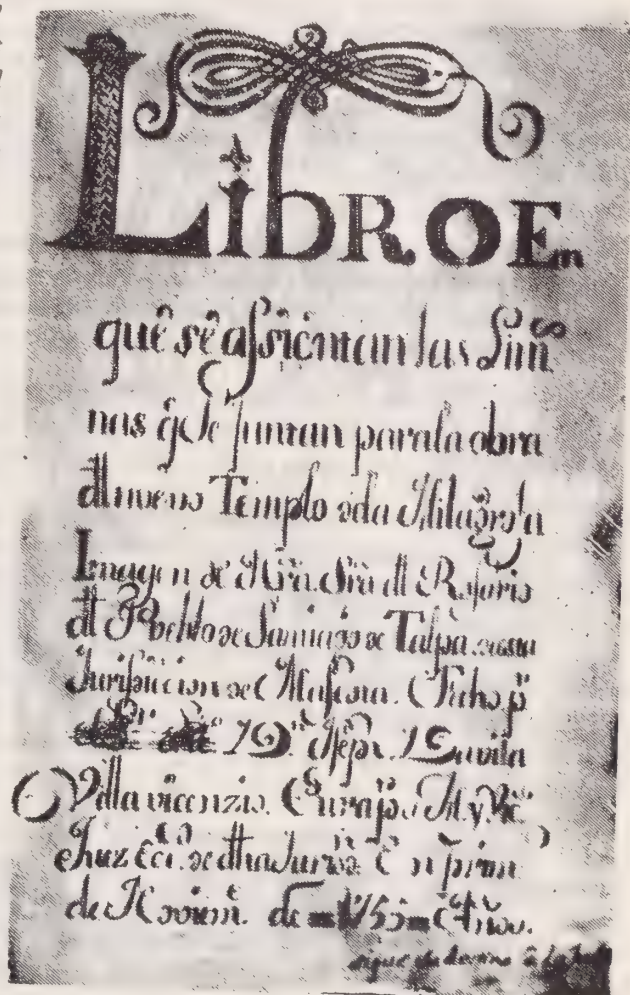 LibRO En
que se assientan las Lim
nas q̃ Se juntan para la obra
dl nuevo Templo de la Milagrosa
Imagen de Nrã. Srã dl Rosario
dl Pueblo de Santiago de Talpa
Jurisdiccion de Mascota. Fecho pr
Davila
Villavicenzio. Cura pr. S. M. y Vic.
Juez Ecco. de dha Juron. En prim
de Noviem. de Año.